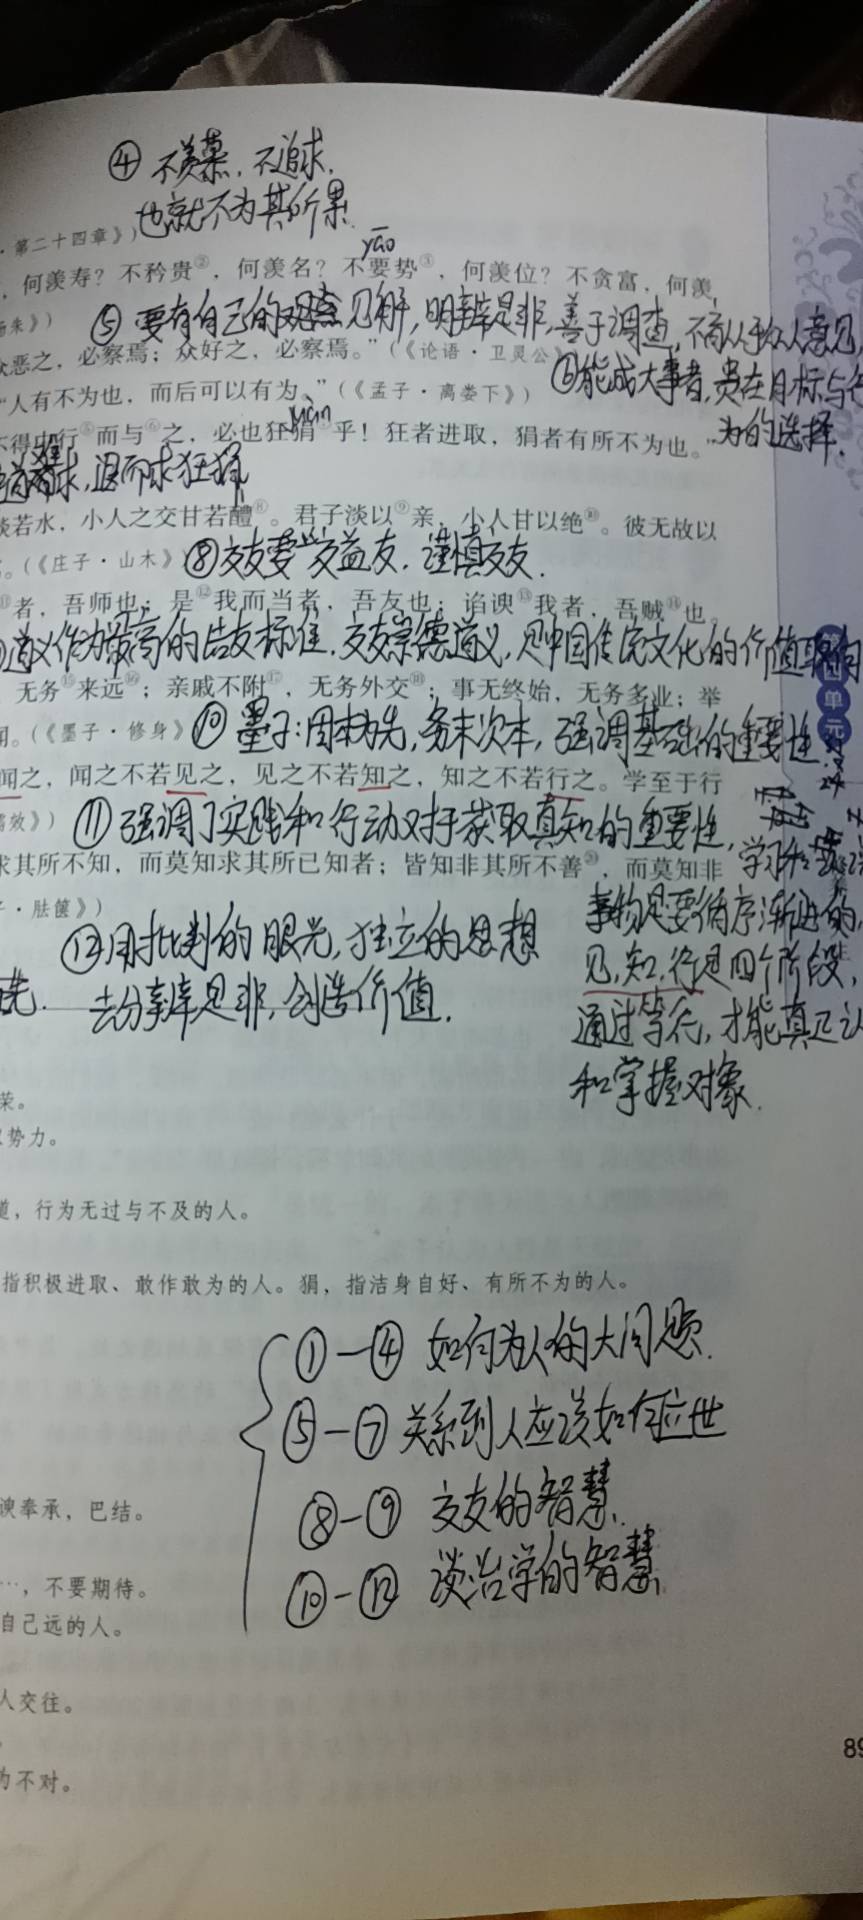 ④ 不羡慕，不追求，
也就不为其所累
·第二十四章》）
yāo
，何羡寿？不矜贵②，何羡名？不要势③，何羡位？不贪富，何羡
杨朱》）
⑤ 要有自己的观点见解，明辨是非，善于调查，不盲从于众人意见
众恶之，必察焉；众好之，必察焉。”（《论语·卫灵公
⑥能成大事者，贵在目标与行
为的选择.
“人有不为也，而后可以有为。”（《孟子·离娄下》）
juàn
不得中行⑤而与⑥之，必也狂狷⑦乎！狂者进取，狷者有所不为也。”
求，退而求狂狷
淡若水，小人之交甘若醴⑧。君子淡以⑨亲，小人甘以绝⑩。彼无故以
。（《庄子·山木》
⑧交友要“交益友，谨慎交友.
⑪者，吾师也；是⑫我而当者，吾友也；谄谀⑬我者，吾贼⑭也。
道义作为最高的结友标准，交友崇德道义，见中国传统文化的价值取向
第四单元
，无务⑮来远⑯；亲戚不附⑰，无务外交⑱；事无终始，无务多业；举
闻。（《墨子·修身》
⑩ 墨子：固本为先，务末次本，强调基础的重要性.
闻之，闻之不若见之，见之不若知之，知之不若行之。学至于行
儒效》）
⑪ 强调了实践和行动对于获取真知的重要性，学习和
事物是要循序渐进的，
见，知，行是四个阶段，
通过笃行，才能真正认
和掌握对象.
求其所不知，而莫知求其所已知者；皆知非其所不善⑳，而莫知非
子·胠箧》）
⑫用批判的眼光，独立的思想
去分辨是非，创造价值.
先.
荣。
势力。
道，行为无过与不及的人。
指积极进取、敢作敢为的人。狷，指洁身自好、有所不为的人。
①—④ 如何为人的大问题.
⑤—⑦ 关系到人应该如何立世
⑧—⑨ 交友的智慧.
⑩—⑫ 谈治学的智慧.
谀奉承，巴结。
…，不要期待。
自己远的人。
人交往。
为不对。
89